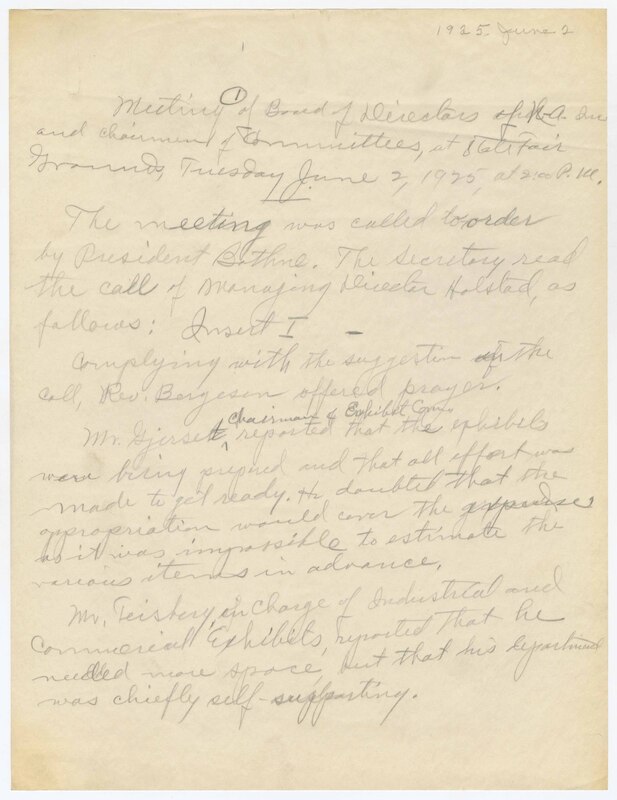 1925. June 2
1
Meeting of Board of Directors of N.A. Inc
and chairmen of Committees, at State Fair
Grounds, Tuesday June 2, 1925, at 2:00 P.M.
The meeting was called to order
by President Bothne. The Secretary read
the call of Managing Director Holstad, as
follows: Insert I -
Complying with the suggestion of the
call, Rev. Bergeson offered prayer.
Chairman of Exhibit Com.
Mr. Gjerset reported that the exhibits
were being prepared and that all effort was
made to get ready. He doubted that the
appropriation would cover the expenses
as it was impossible to estimate the
various items in advance.
Mr. Teisberg, in Charge of Industrial and
Commercial Exhibits, reported that he
needed more space, but that his department
was chiefly self-supporting.